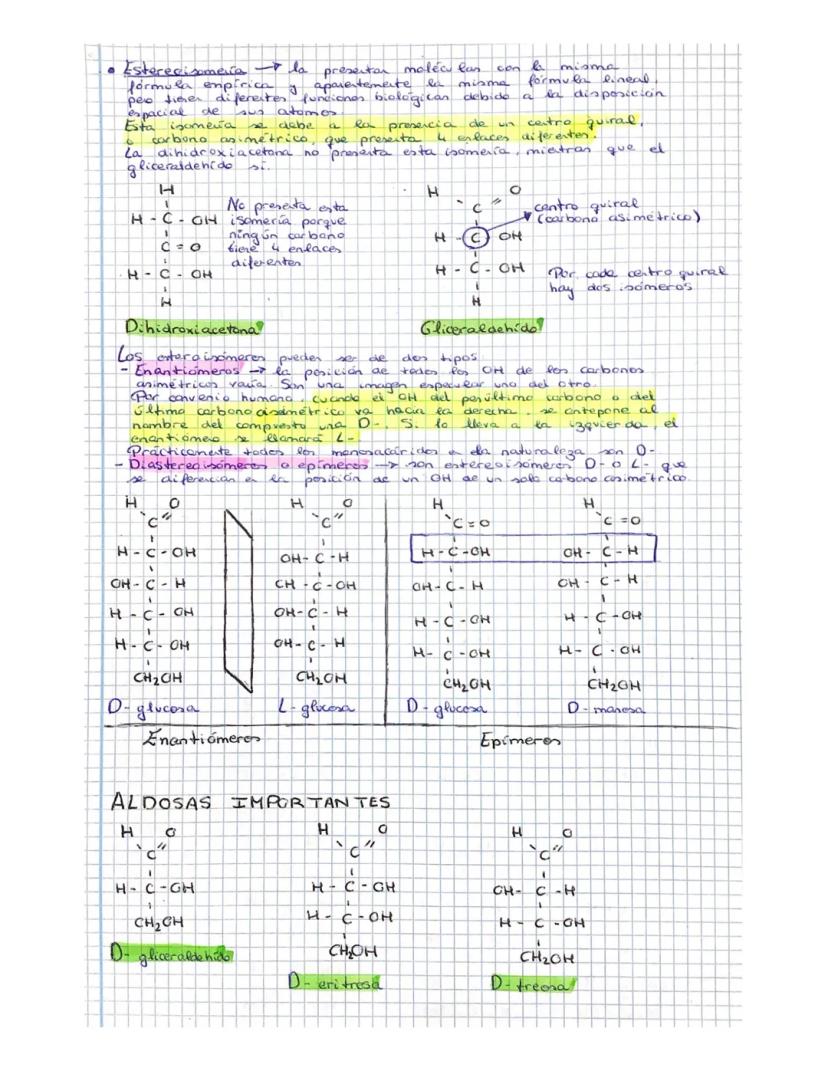 • Estereoisomería → la presentan moléculas con la misma
fórmula empírica y aparentemente la misma fórmula lineal,
pero tienen diferentes funciones biológicas debido a la disposición
espacial de sus átomos.
Esta isomería se debe a la presencia de un centro quiral,
o carbono asimétrico, que presenta 4 enlaces diferentes.
La dihidroxiacetona no presenta esta isomería, mientras que el
gliceraldehído sí.
H
H - C - OH
C = O
H - C - OH
H
No presenta esta
isomería porque
ningún carbono
tiene 4 enlaces
diferentes
H O
C
H - C OH
H - C - OH
H
centro quiral
(carbono asimétrico)
Por cada centro quiral
hay dos isómeros
Dihidroxiacetona
Gliceraldehído
Los estereoisómeros pueden ser de dos tipos
- Enantiómeros → la posición de todos los OH de los carbonos
asimétricos varía. Son una imagen especular uno del otro.
Por convenio humano, cuando el OH del penúltimo carbono o del
último carbono asimétrico va hacia la derecha, se antepone al
nombre del compuesto una D-. Si lo lleva a la izquierda, el
enantiómero se llamará L-
Prácticamente todos los monosacáridos en la naturaleza son D-
- Diastereoisómeros o epímeros → son estereoisómeros D- o L- que
se diferencian en la posición de un OH de un solo carbono asimétrico.
H O
C
H - C - OH
OH - C - H
H - C - OH
H - C - OH
CH₂OH
D- glucosa
H O
C
OH - C - H
CH - C - OH
OH - C - H
OH - C - H
CH₂OH
L- glucosa
Enantiómeros
H
C = O
H - C - OH
OH - C - H
H - C - OH
H - C - OH
CH₂OH
D- glucosa
H
C = O
OH - C - H
OH - C - H
H - C - OH
H - C - OH
CH₂OH
D- manosa
Epímeros
ALDOSAS IMPORTANTES
H O
C
H - C - OH
CH₂OH
D- gliceraldehído
H O
C
H - C - OH
H - C - OH
CH₂OH
D- eritrosa
H O
C
OH - C - H
H - C - OH
CH₂OH
D- treosa